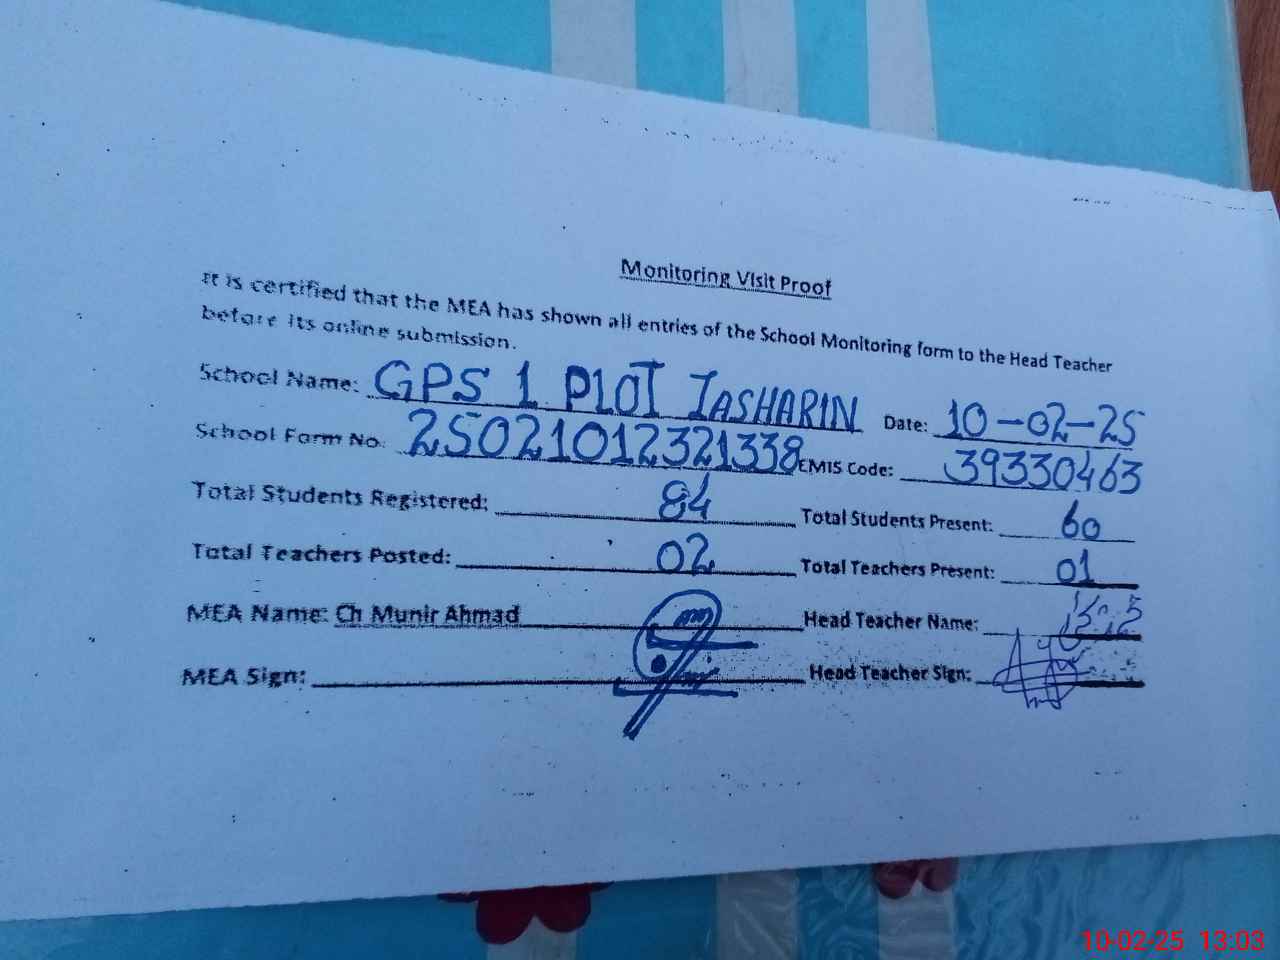 Monitoring Visit Proof
It is certified that the MEA has shown all entries of the School Monitoring form to the Head Teacher
before its online submission.
School Name: GPS 1 PLOT JASHARIN Date: 10-02-25
School Form No. 25021012321338 EMIS Code: 39330463
Total Students Registered: 84 Total Students Present: 60
Total Teachers Posted: 02 Total Teachers Present: 01
MEA Name: Ch Munir Ahmad Head Teacher Name:
MEA Sign: Head Teacher Sign:
10-02-25 13:03